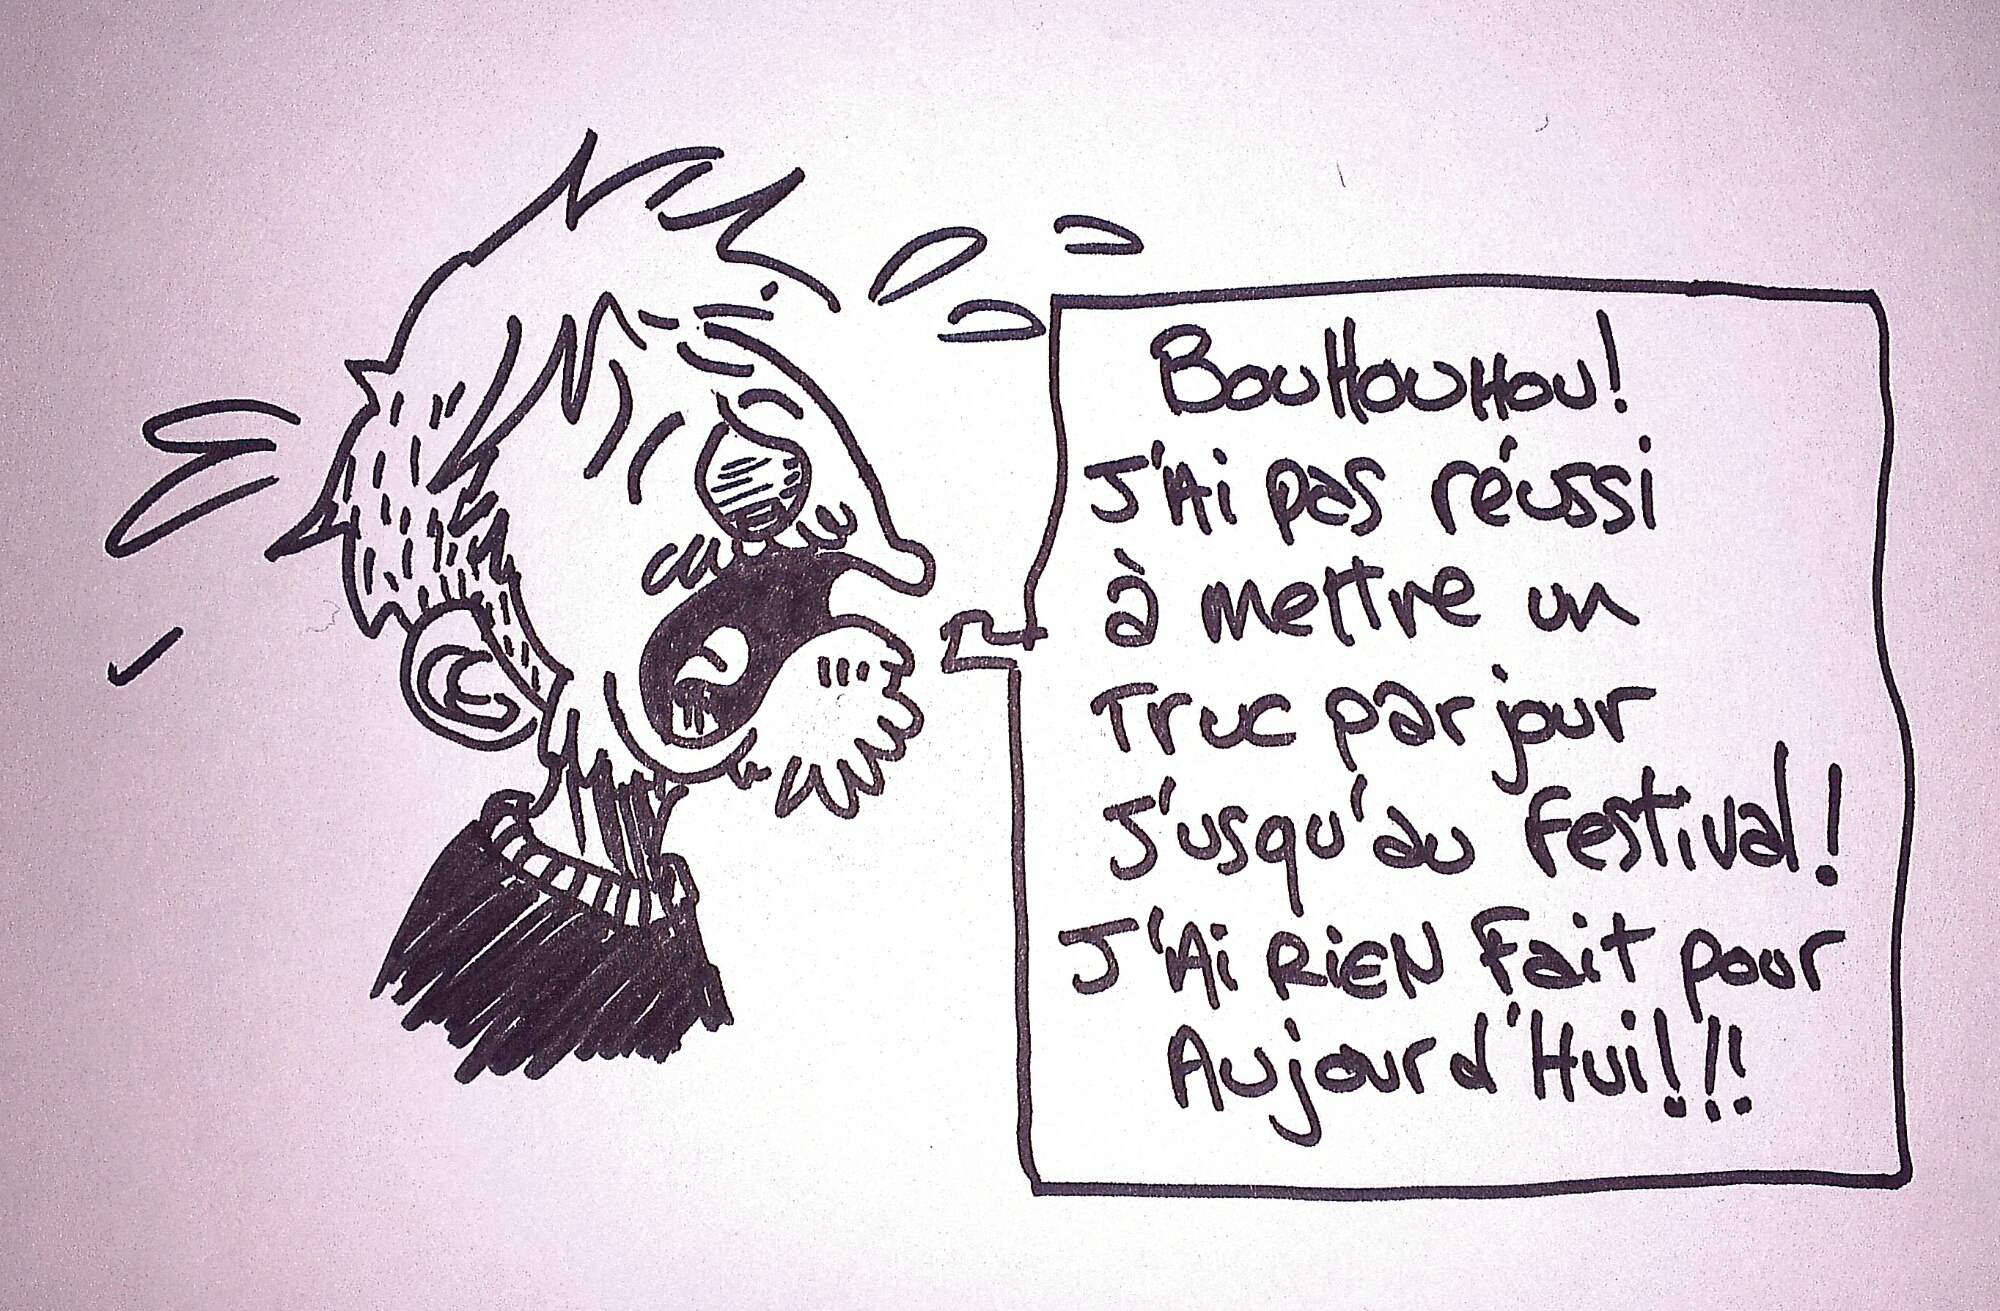 BouHouHou!
J'Ai pas réussi
à mettre un
Truc par jour
J'usqu'au Festival!
J'Ai RiEN Fait pour
Aujourd'Hui!!!